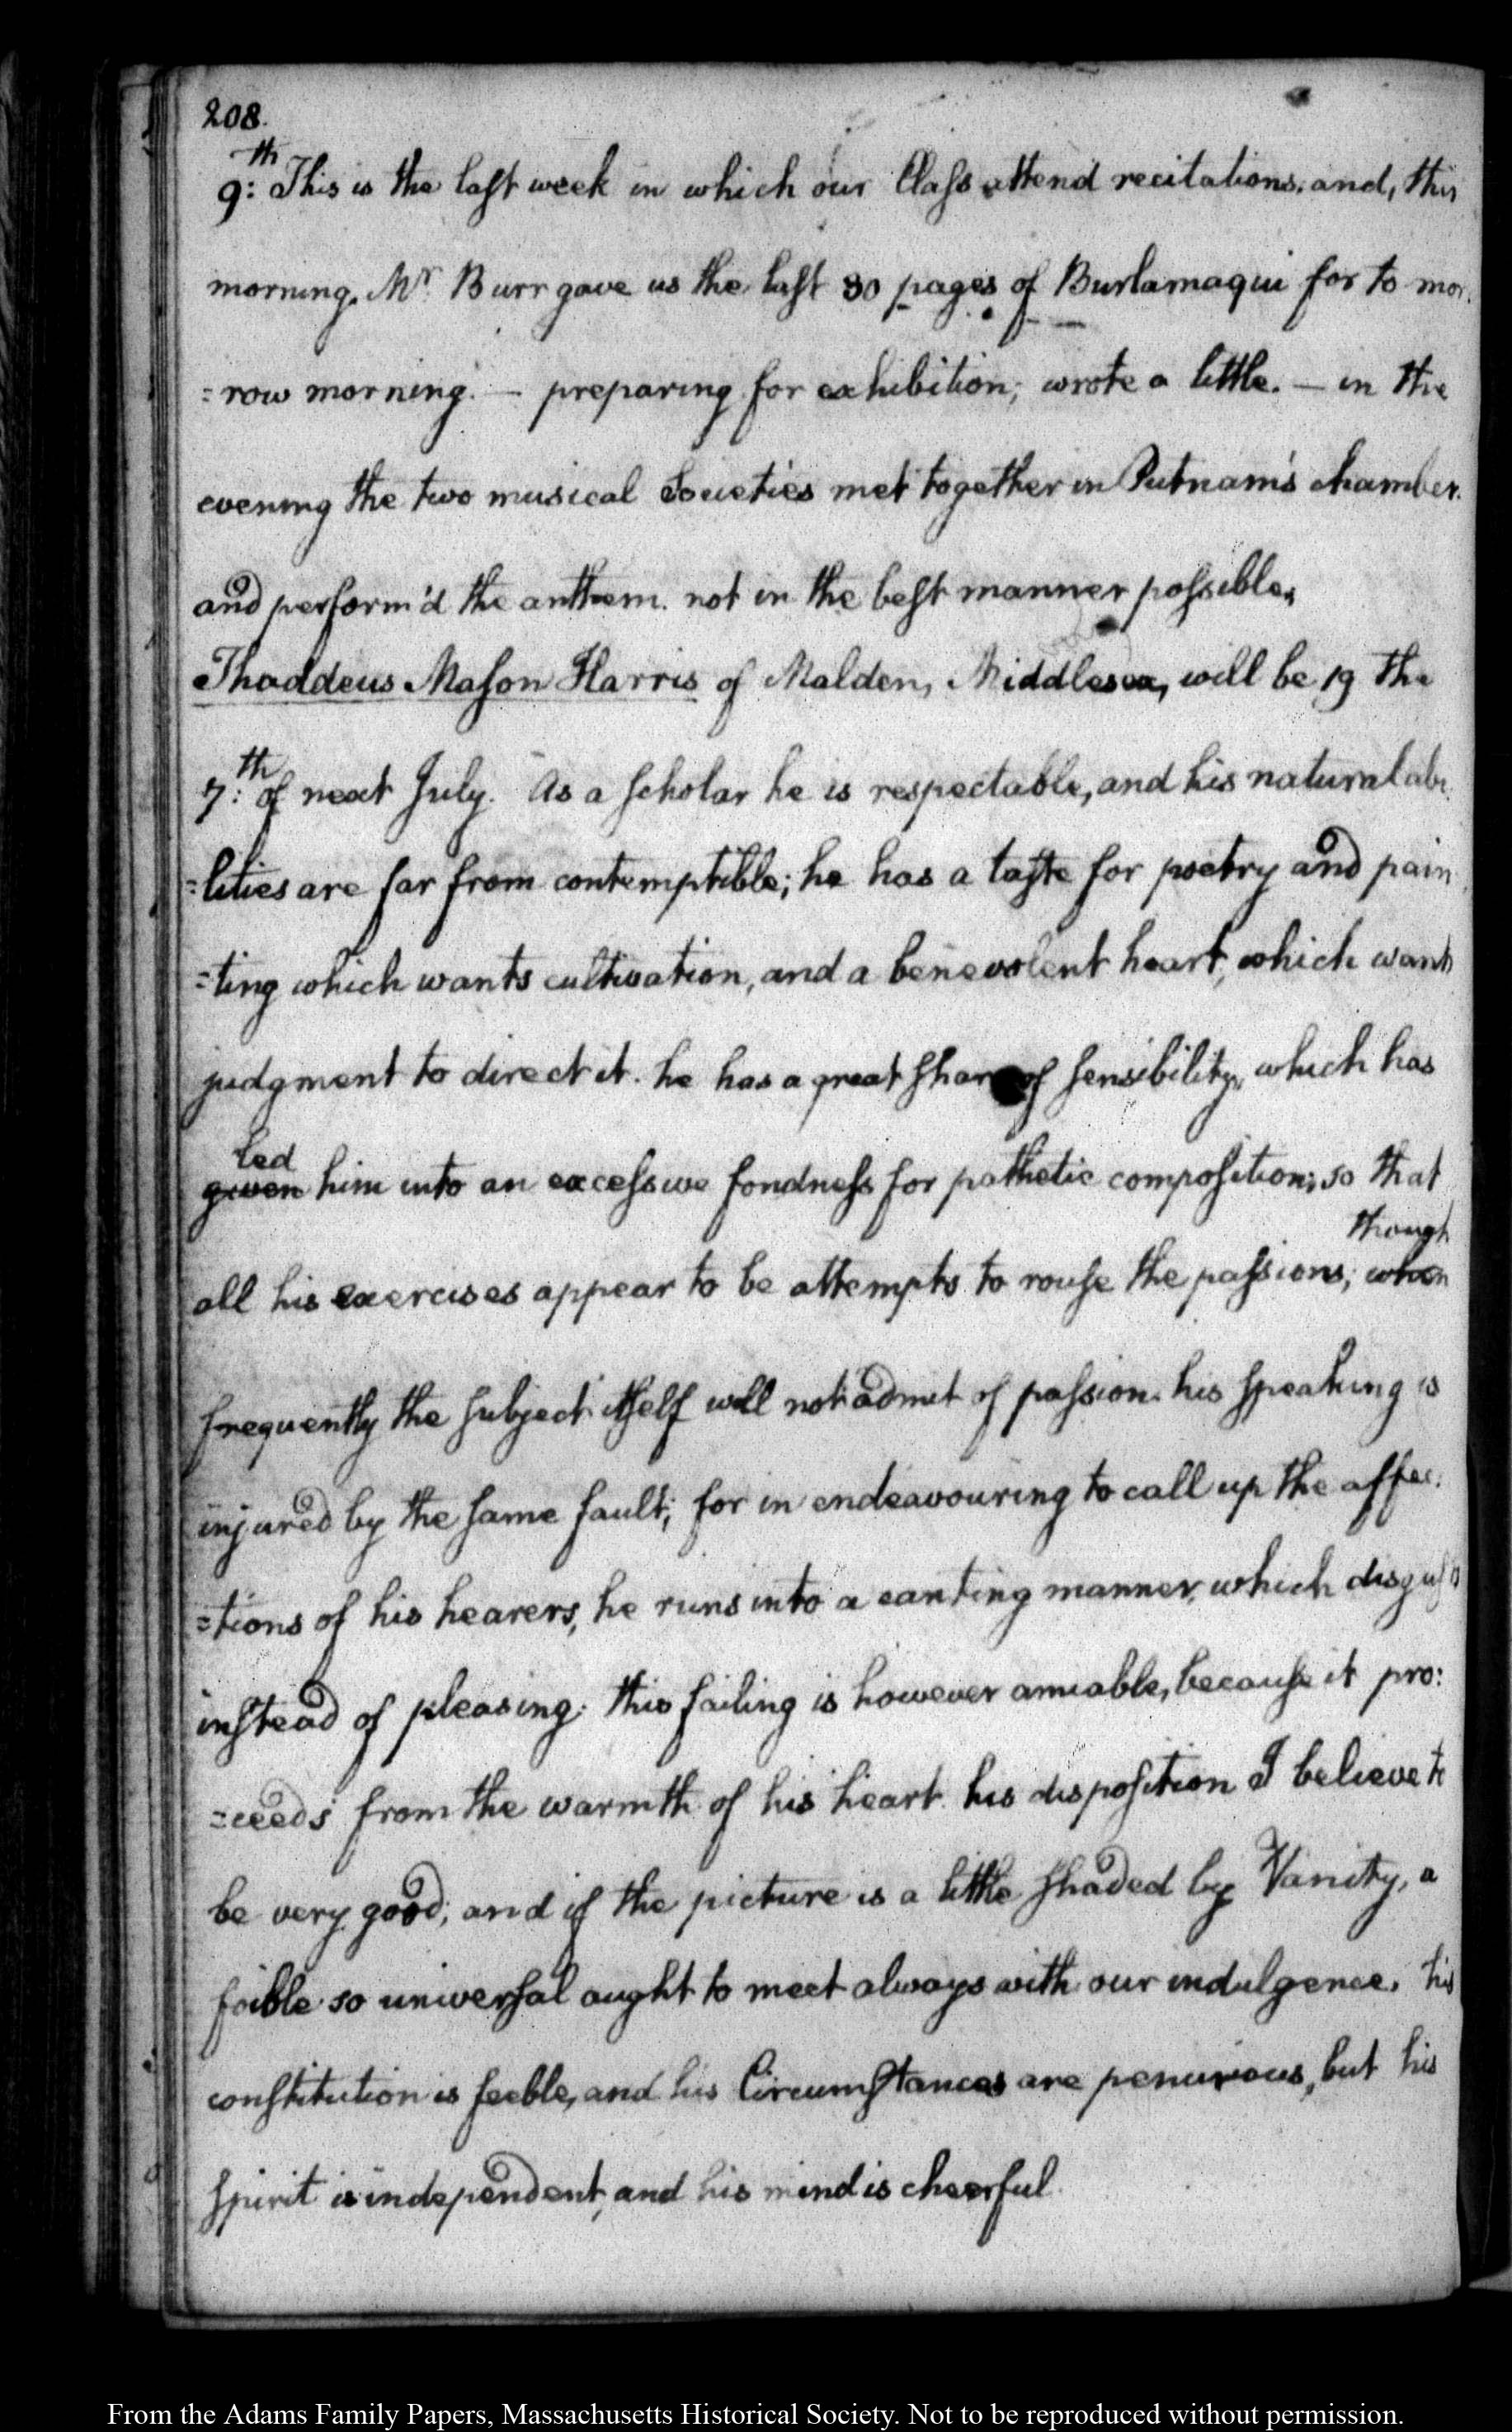 208.
9:th This is the last week in which our Class attend recitations. and, this
morning. Mr. Burr gave us the last 30 pages of Burlamaqui for to mor.
=row morning. — preparing for exhibition; wrote a little. — in the
evening the two musical Societies met together in Putnam's chamber.
and perform'd the anthem. not in the best manner possible.
Thaddeus Mason Harris of Malden, Middlesex, will be 19 the
7:th of next July. As a scholar he is respectable, and his natural abi.
=lities are far from contemptible; he has a taste for poetry and pain
=ting which wants cultivation, and a benevolent heart, which wants
judgment to direct it. he has a great share of sensibility, which has
led
given him into an excessive fondness for pathetic composition; so that
though
all his exercises appear to be attempts to rouse the passions; when
frequently the subject itself will not admit of passion. his speaking is
injured by the same fault; for in endeavouring to call up the affec:
=tions of his hearers, he runs into a canting manner, which disgusts
instead of pleasing. this failing is however amiable, because it pro:
=ceeds from the warmth of his heart. his disposition I believe to
be very good; and if the picture is a little shaded by Vanity, a
foible so universal aught to meet always with our indulgence. his
constitution is feeble, and his Circumstances are penurious, but his
spirit is independent, and his mind is cheerful.
From the Adams Family Papers, Massachusetts Historical Society. Not to be reproduced without permission.